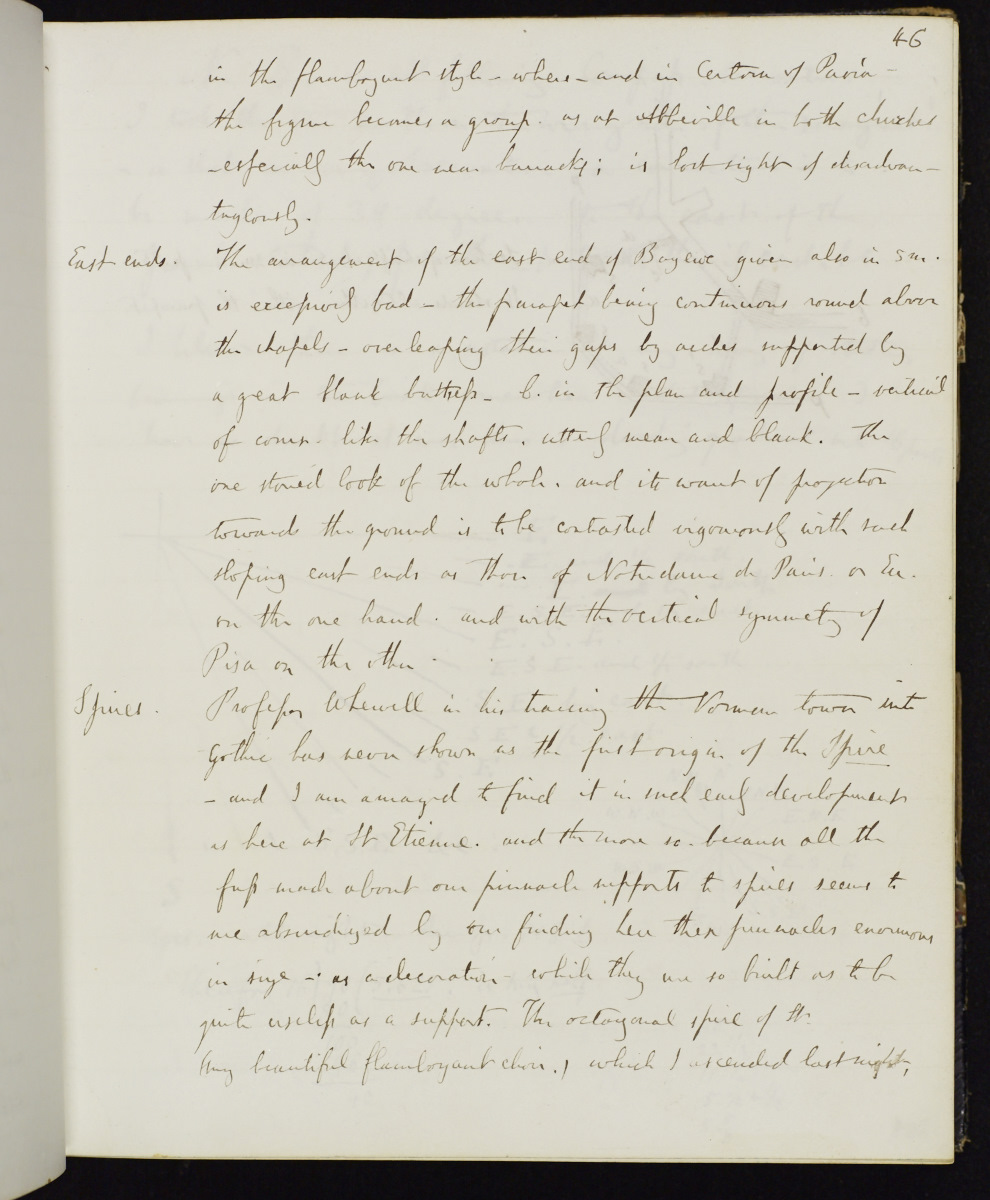 46
in the flamboyant style - where - and in Certosa of Pavia -
the figure becomes a group. as at Abbeville in both churches
- especially the one near barracks; is lost sight of disadvan-
tageously.
East ends. The arrangement of the east end of Bayeux given also in s m.
is exceprorly bad - the parapet being continuous round above
the chapels - overleaping their gaps by arches supported by
a great blank buttress - b. in the plan and profile - vertical
of course - like the shafts. utterly mean and blank. The
one storied look of the whole. and its want of projection
towards the ground is to be contrasted vigorously with such
sloping east ends as those of Notredame de Paris. or Eu.
on the one hand. and with the vertical symmetry of
Pisa on the other -
Spires. Professor Whewell in his tracing the Norman tower into
Gothic has never shown us the first origin of the Spire
- and I am amazed to find it in such early development
as here at St Etienne. and the more so. because all the
fuss made about our pinnacle supports to spires seems to
me absurdized by our finding here these pinnacles enormous
in size - as a decoration - while they are so built as to be
quite useless as a support. The octagonal spire of St.
(my beautiful flamboyant choir.) which I ascended last night,